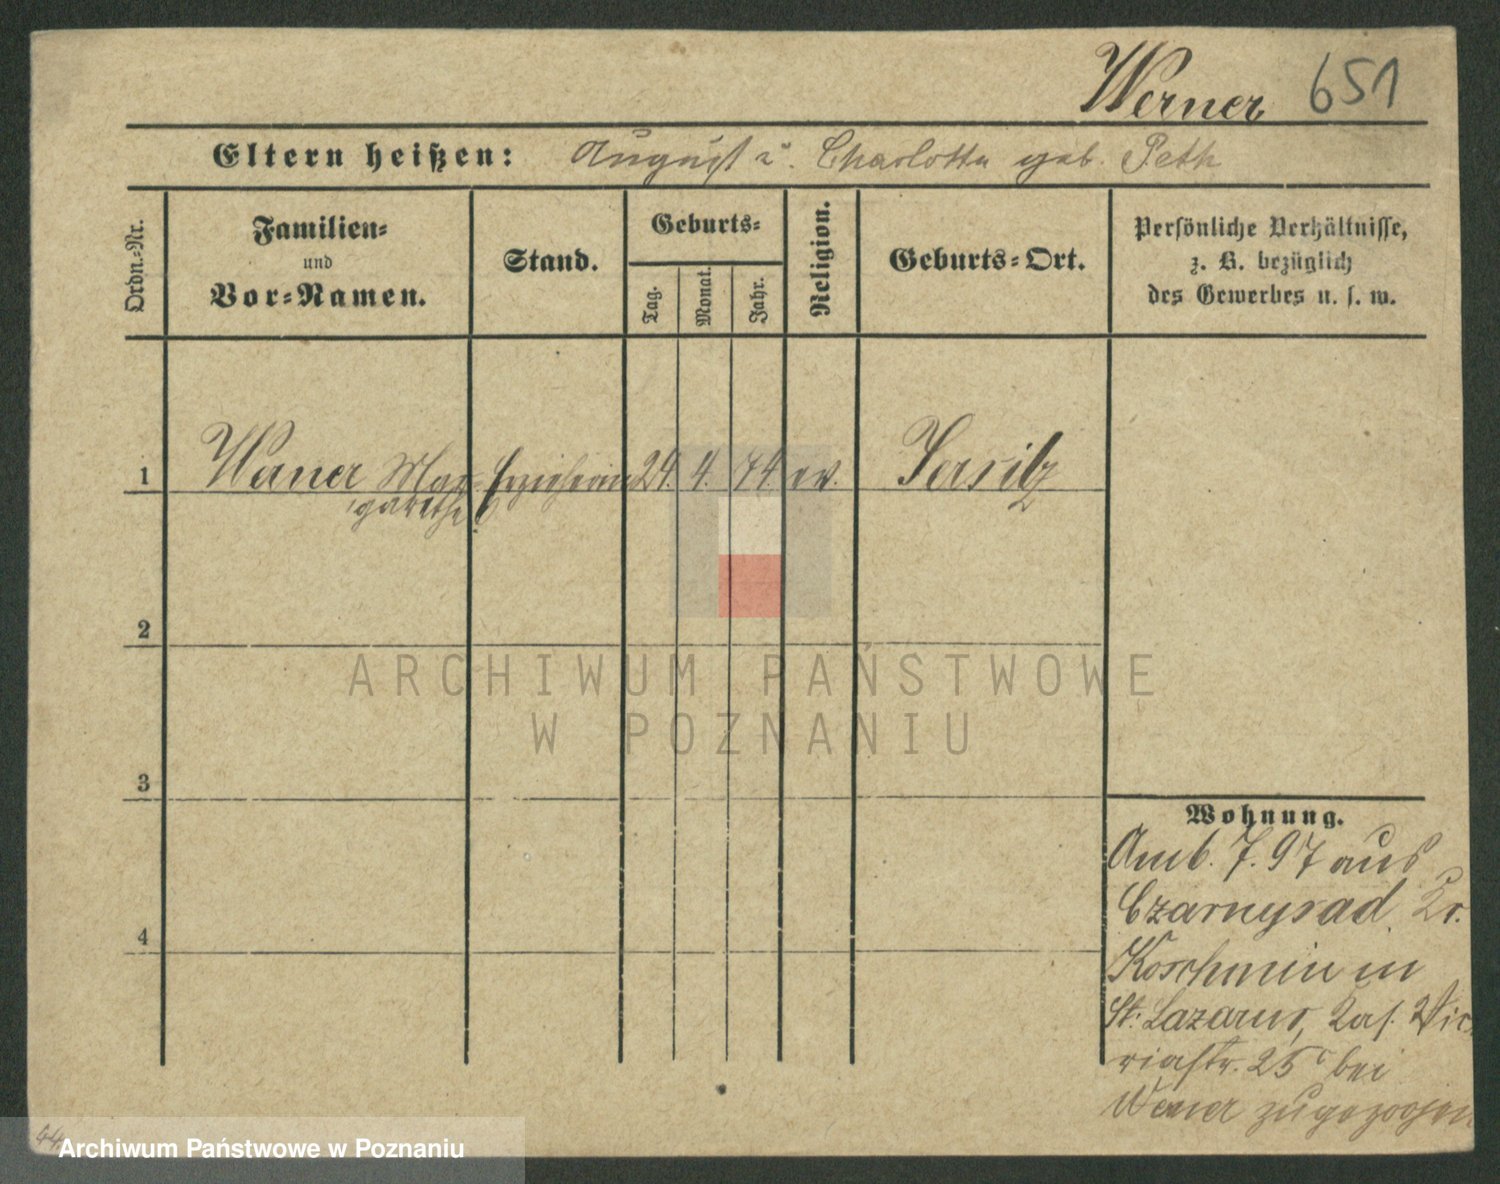 Werner 651
Eltern heißen: August u. Charlotte geb. Peth
Ordn.-Nr.
Familien-
und
Vor-Namen.
Stand.
Geburts-
Tag.
Monat.
Jahr.
Religion.
Geburts-Ort.
Persönliche Verhältnisse,
z. B. bezüglich
des Gewerbes u. s. w.
1 Werner Mar- Erzieherin 24. 4. 74. ev. Jersitz
garethe
2
3
4
Wohnung.
Amb. 7. 97 aus
Czarnysad Kr.
Koschmin in
St. Lazarus,
riastr. 25 bei
Werner zugezogen
ARCHIWUM PAŃSTWOWE
W POZNANIU
Archiwum Państwowe w Poznaniu